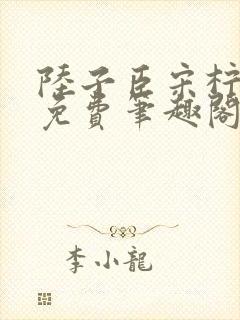 陸子臣宋梓
免費筆趣閣
李小龍